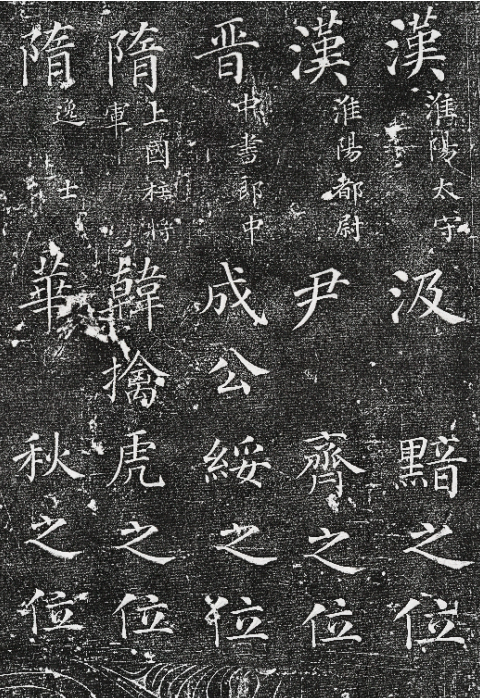 漢淮陽太守汲黯之位
漢淮陽都尉尹齊之位
晋中書郎中成公綏之位
隋上國柱將軍韓擒虎之位
隋逸士華秋之位